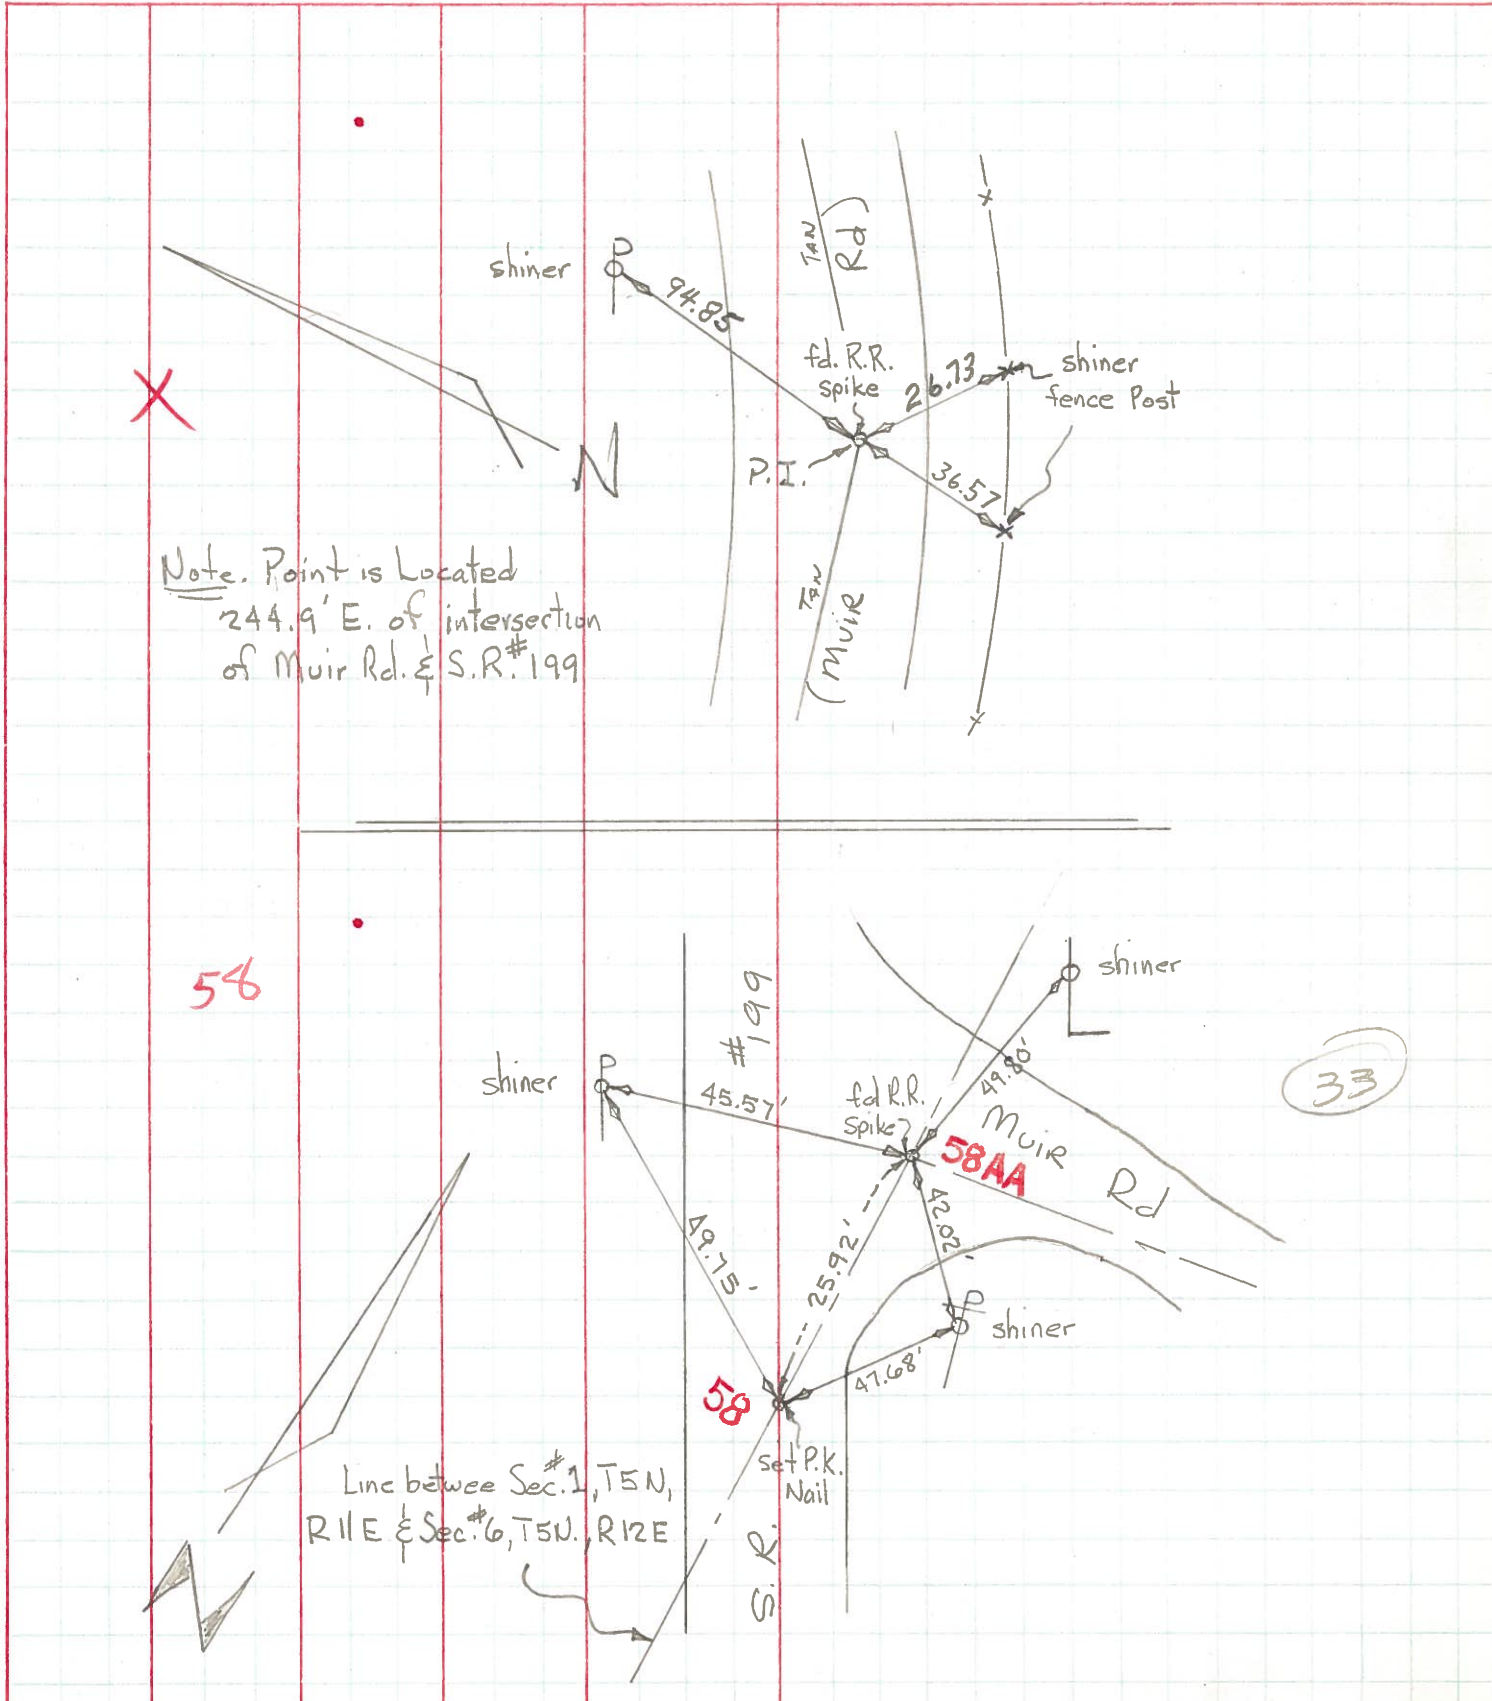 TAN
Rd)
P
shiner
94.85
X
fd. R.R.
spike
26.73
shiner
fence Post
P.I.
36.57
N
TAN
(Muir
Note. Point is Located
244.9' E. of intersection
of Muir Rd. & S.R.#199
58
#199
shiner
P
shiner
45.57'
fd R.R.
Spike
49.80'
Muir
Rd
33
58AA
42.02'
49.75'
25.92'
P
shiner
47.68'
58
set P.K.
Nail
Line betwee Sec.#1, T5N,
R11E & Sec.#6, T5N., R12E
S. R.
N